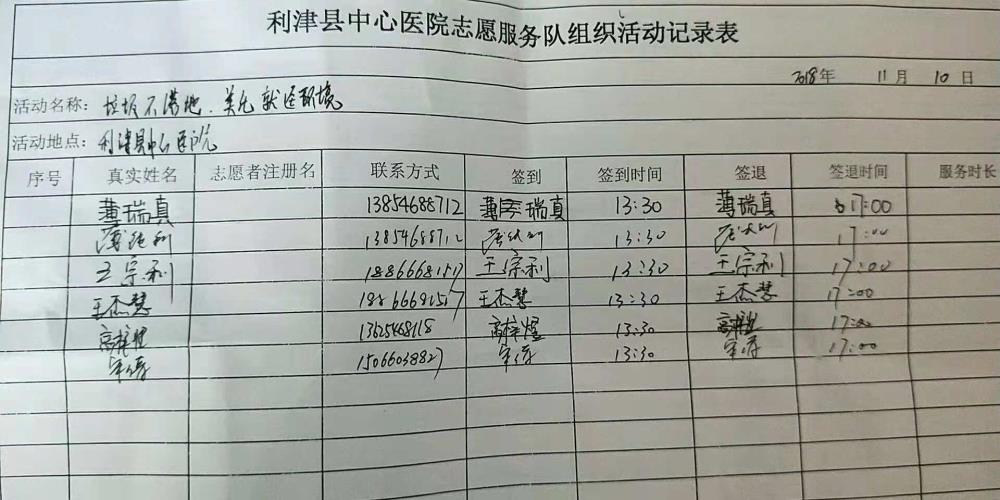 利津县中心医院志愿服务队组织活动记录表
2018年 11月 10日
活动名称: 垃圾不落地、美化就医环境
活动地点: 利津县中心医院
序号 真实姓名 志愿者注册名 联系方式 签到 签到时间 签退 签退时间 服务时长
薄瑞真 13854688712 薄瑞真 13:30 薄瑞真 17:00
13854688712 13:30 17:00
王宗利 18866681517 王宗利 13:30 王宗利 17:00
王杰慧 18866681517 王杰慧 13:30 王杰慧 17:00
高梓煜 13625468118 高梓煜 13:30 高梓煜 17:00
15066038827 13:30 17:00